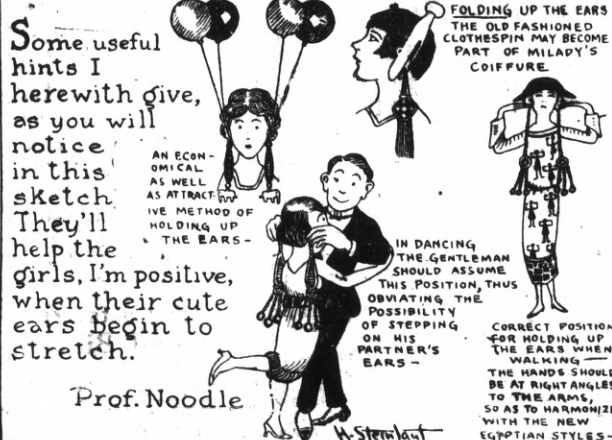 Some useful
hints I
herewith give,
as you will
notice
in this
sketch
They'll
help the
girls, I'm positive,
when their cute
ears begin to
stretch.
Prof. Noodle
AN ECON-
OMICAL
AS WELL
AS ATTRACT-
IVE METHOD OF
HOLDING UP
THE EARS-
FOLDING UP THE EARS
THE OLD FASHIONED
CLOTHESPIN MAY BECOME
PART OF MILADY'S
COIFFURE
IN DANCING
THE GENTLEMAN
SHOULD ASSUME
THIS POSITION, THUS
OBVIATING THE
POSSIBILITY
OF STEPPING
ON HIS
PARTNER'S
EARS-
CORRECT POSITION
FOR HOLDING UP
THE EARS WHEN
WALKING—
THE HANDS SHOULD
BE AT RIGHT ANGLES
TO THE ARMS,
SO AS TO HARMONIZE
WITH THE NEW
EGYPTIAN STYLES-